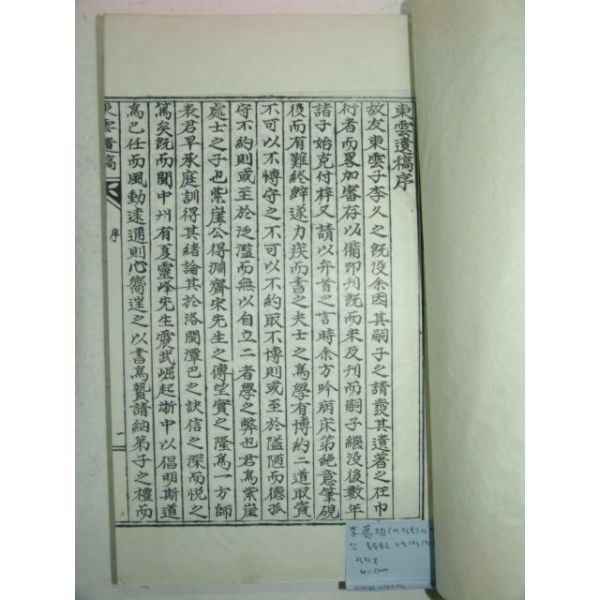 東雲遺稿序
故友東雲子李久之旣没余因其嗣子之請發其遺著之在巾
衍者而畧加審存以備印刊旣而未及刊而嗣子繼没後數年
諸子始克付梓又請以弁首之言時余方吟病床第絶意筆硯
役而有難終辭遂力疾而書之夫士之爲學有博約二道取資
不可以不博守之不可以不約取不博則或至於隘陋而德孤
守不約則或至於泛濫而無以自立二者學之弊也君爲紫崖
處士之子也紫崖公得淵齋宋先生之傳望實之隆爲一方師
表君早承庭訓得其緖論其於洛閩潭巴之訣信之深而悅之
篤矣旣而聞中州有夏靈峰先生震武崛起浙中以倡明斯道
爲己任而風動遠邇則心嚮逞之以書爲贄請納弟子之禮而
東雲遺稿
序
一